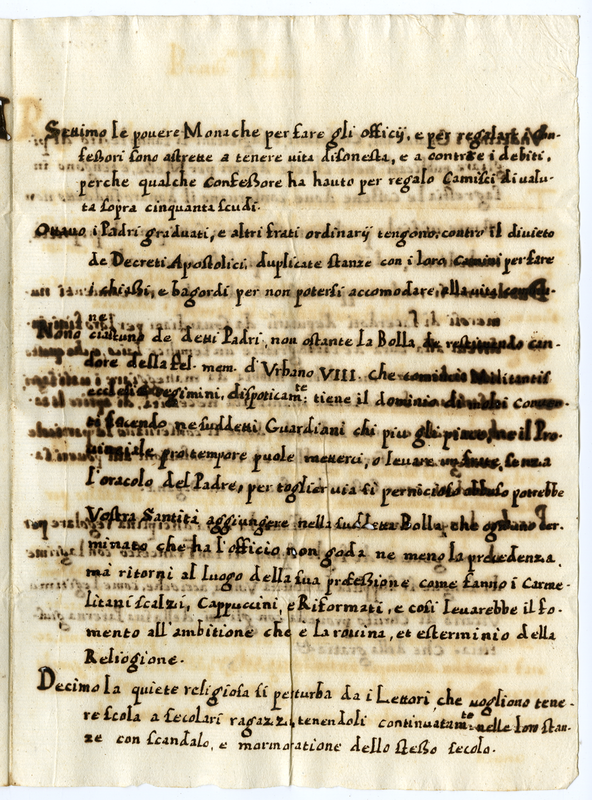 Settimo le povere Monache per fare gli officij, e per regalare i Con-
feßori sono astrette a tenere vita disonesta, e a contrae i debiti,
perche qualche Confeßore ha hauto per regalo Camisci di valu-
ta sopra cinquanta scudi.
Ottavo i Padri graduati, e altri frati ordinarij tengono, contro il divieto
de Decreti Apostolici, duplicate stanze con i loro Camini per fare
, e bagordi per non potersi accomodare alla vita
ne.
Nono ciascuno de detti Padri, non ostante la Bolla de
dore della fel. mem. d'Urbano VIII. che Militantis
ecclesiæ regimini, dispoticamte: tiene il dominio di
facendo ne suddetti Guardiani chi piu gli piace, ne il Pro-
vinciale pro tempore puole metterci, o levare un frate, senza
l'oracolo del Padre, per toglier via si pernicioso abbuso potrebbe
Vostra Santità aggiungere nella suddetta Bolla, che ogn'uno ter-
minato che ha l'officio non goda ne meno la precedenza,
mà ritorni al luogo della sua profeßione, come fanno i Carme-
litani scalzi, Cappuccini, e Riformati, e cosi levarebbe il fo-
mento all'ambitione che è la rovina, et esterminio della
Reliogione.
Decimo la quiete religiosa si perturba da i Lettori, che vogliono tene-
re scola a secolari ragazzi, tenendoli continuatamte: nelle loro stan-
ze con scandalo, e mormoratione dello steßo secolo.